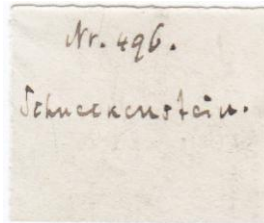 Nr. 496.
Schneckenstein.